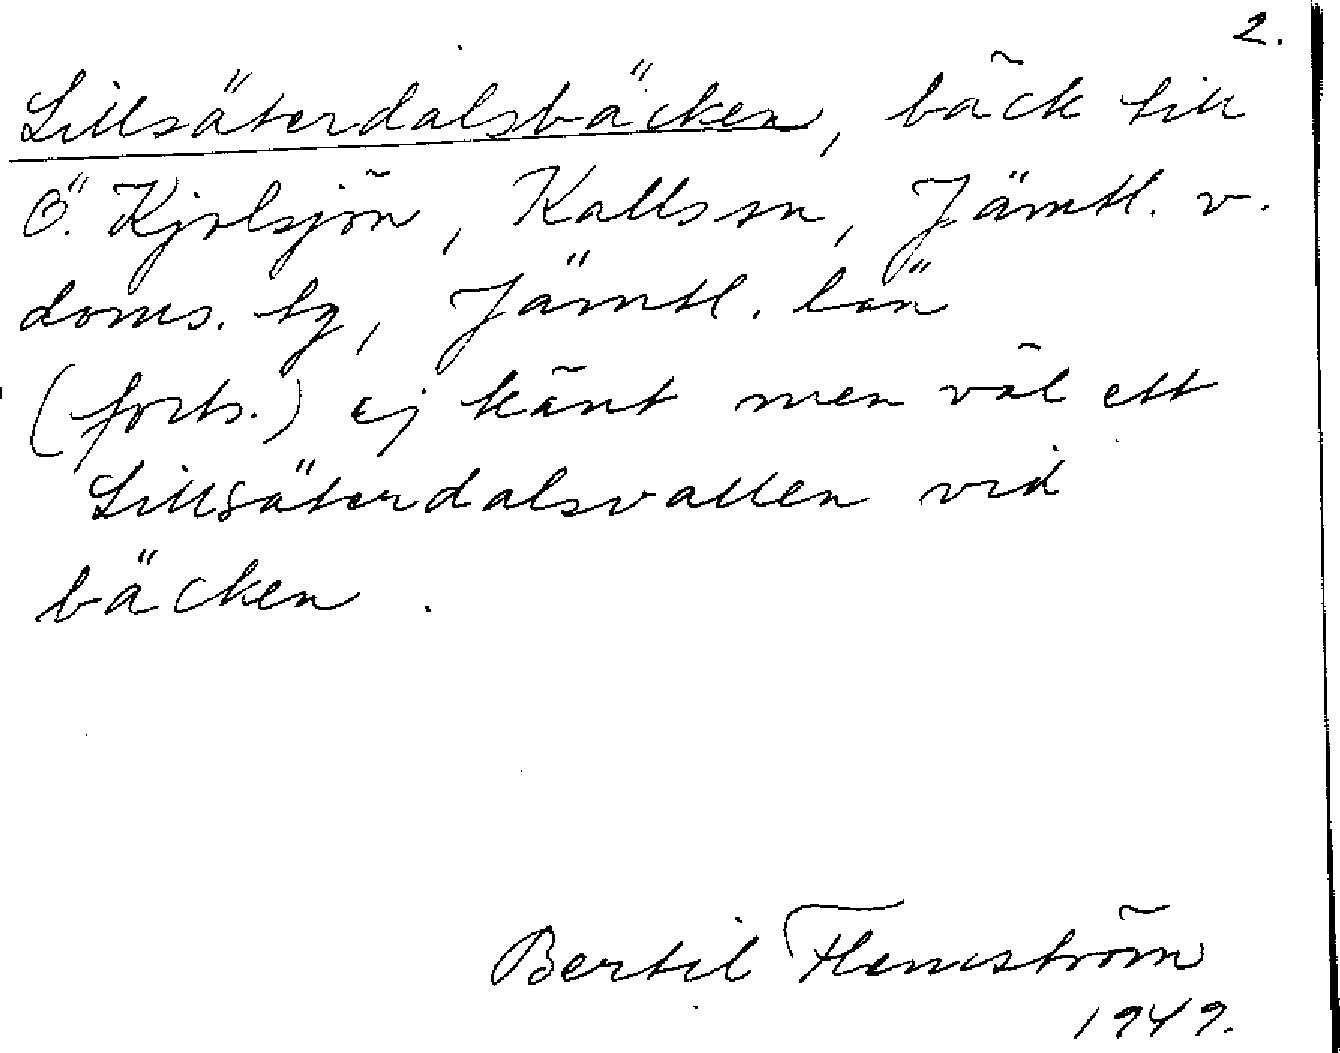 2.
Lillsäterdalsbäcken, bäck till
Ö. Kjolsjön, Kalls sn, Jämtl. v.
doms. tg, Jämtl. län
(forts.) ej känt men väl ett
Lillsäterdalsvallen vid
bäcken.
Bertil Flemström
1949.